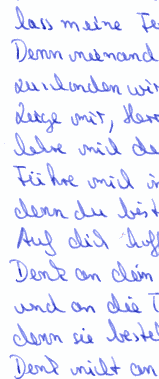 lass meine Fe
Denn niemand
zuschanden wir
Zeige mir, Herr
lehre mich de
Führe mich i
denn du bist
Auf dich hoff
Denk an dein
und an die T
denn sie besteh
Denk nicht an